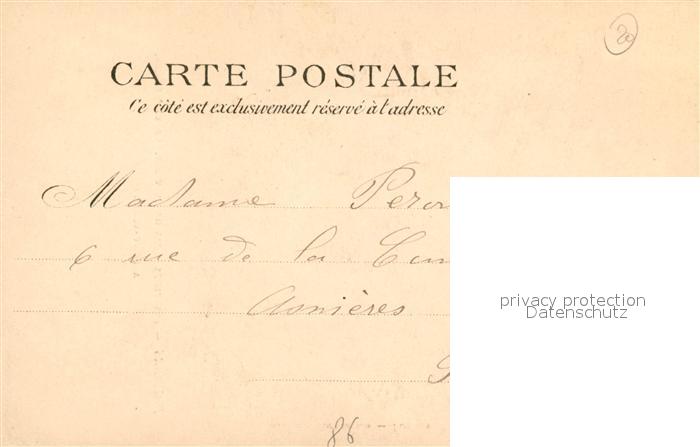 20
CARTE POSTALE
Ce côté est exclusivement réservé à l'adresse
Madame
6 rue de la
privacy protection
Asnières
Datenschutz
86